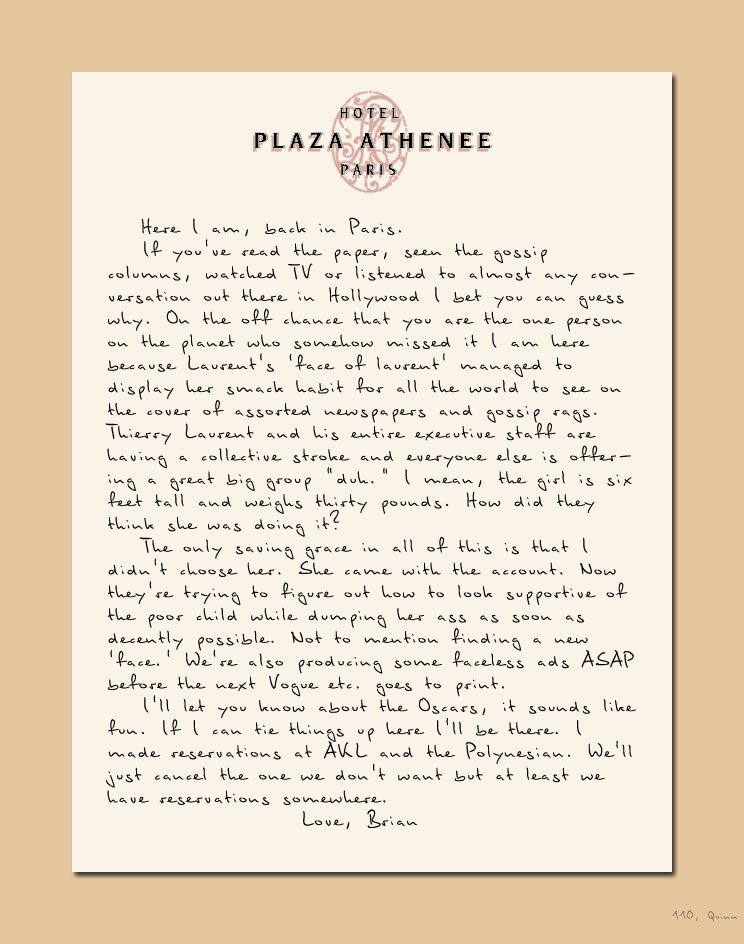 HOTEL
PLAZA ATHENEE
PARIS
Here I am, back in Paris.
If you've read the paper, seen the gossip
columns, watched TV or listened to almost any con-
versation out there in Hollywood I bet you can guess
why. On the off chance that you are the one person
on the planet who somehow missed it I am here
because Laurent's 'face of laurent' managed to
display her smack habit for all the world to see on
the cover of assorted newspapers and gossip rags.
Thierry Laurent and his entire executive staff are
having a collective stroke and everyone else is offer-
ing a great big group "duh." I mean, the girl is six
feet tall and weighs thirty pounds. How did they
think she was doing it?
The only saving grace in all of this is that I
didn't choose her. She came with the account. Now
they're trying to figure out how to look supportive of
the poor child while dumping her ass as soon as
decently possible. Not to mention finding a new
'face.' We're also producing some faceless ads ASAP
before the next Vogue etc. goes to print.
I'll let you know about the Oscars, it sounds like
fun. If I can tie things up here I'll be there. I
made reservations at AKL and the Polynesian. We'll
just cancel the one we don't want but at least we
have reservations somewhere.
Love, Brian
110, Quinn